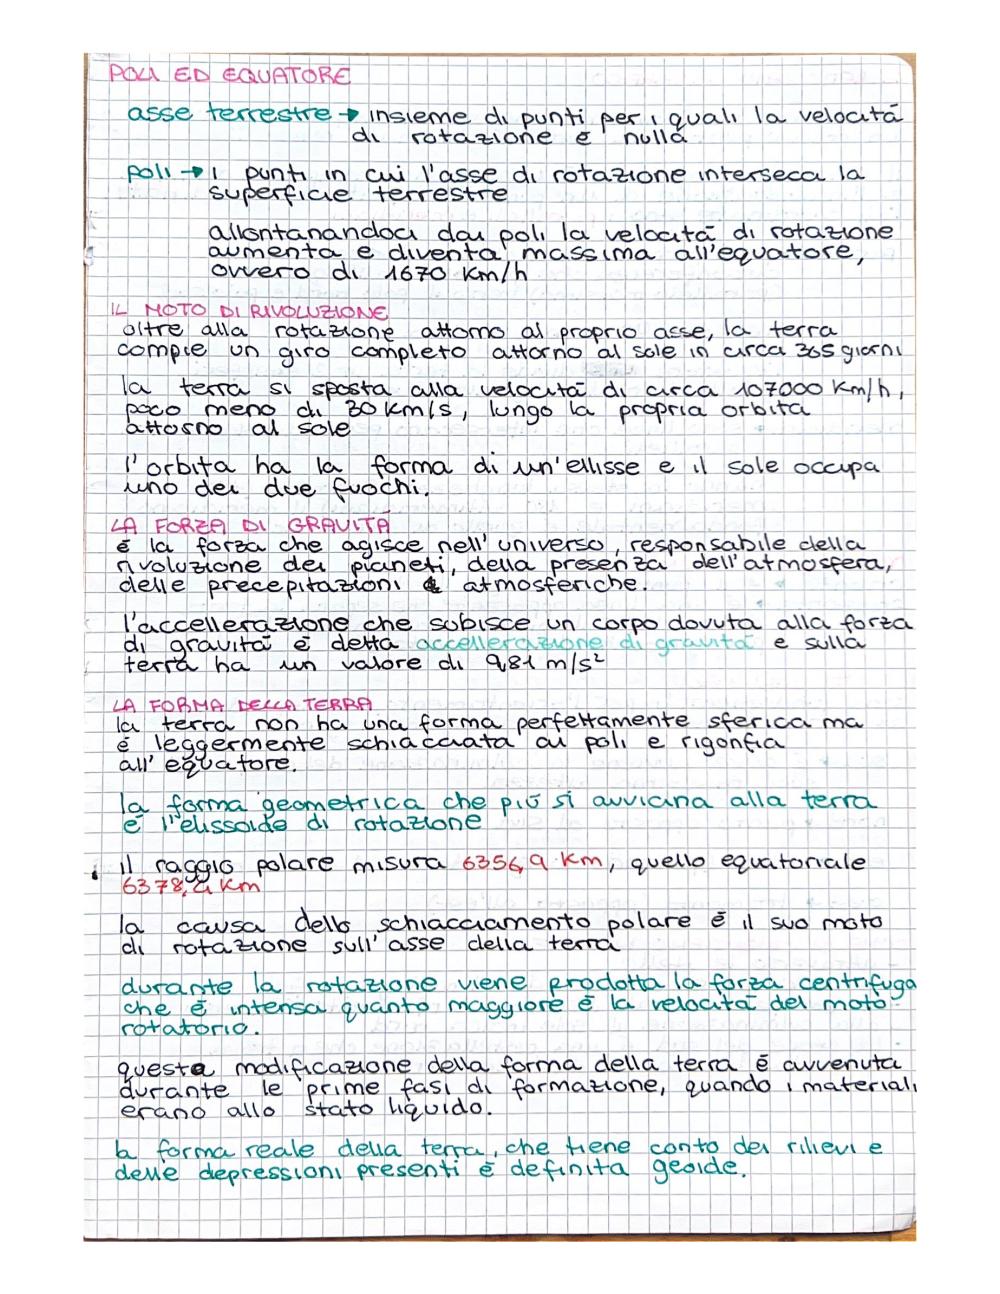 POLI ED EQUATORE
asse terrestre → insieme di punti per i quali la velocitá
di rotazione é nulla
poli → i punti in cui l'asse di rotazione interseca la
superficie terrestre
allontanandoci dai poli la velocitá di rotazione
aumenta e diventa massima all'equatore,
ovvero di 1670 km/h
IL MOTO DI RIVOLUZIONE
oltre alla rotazione attorno al proprio asse, la terra
compie un giro completo attorno al sole in circa 365 giorni
la terra si sposta alla velocitá di circa 107000 km/h,
poco meno di 30 km/s, lungo la propria orbita
attorno al sole
l'orbita ha la forma di un'ellisse e il sole occupa
uno dei due fuochi.
LA FORZA DI GRAVITÁ
é la forza che agisce nell'universo, responsabile della
rivoluzione dei pianeti, della presenza dell'atmosfera,
delle precepitazioni atmosferiche.
l'accellerazione che subisce un corpo dovuta alla forza
di gravitá é detta accellerazione di gravitá e sulla
terra ha un valore di 9,81 m/s²
LA FORMA DELLA TERRA
la terra non ha una forma perfettamente sferica ma
é leggermente schiacciata ai poli e rigonfia
all'equatore.
la forma geometrica che piú si avvicina alla terra
é l'elissoide di rotazione
il raggio polare misura 6356,9 km, quello equatoriale
6378,4 km
la causa dello schiacciamento polare é il suo moto
di rotazione sull'asse della terra
durante la rotazione viene prodotta la forza centrifuga
che é intensa quanto maggiore é la velocitá del moto
rotatorio.
questa modificazione della forma della terra é avvenuta
durante le prime fasi di formazione, quando i materiali
erano allo stato liquido.
la forma reale della terra, che tiene conto dei rilievi e
delle depressioni presenti é definita geoide.